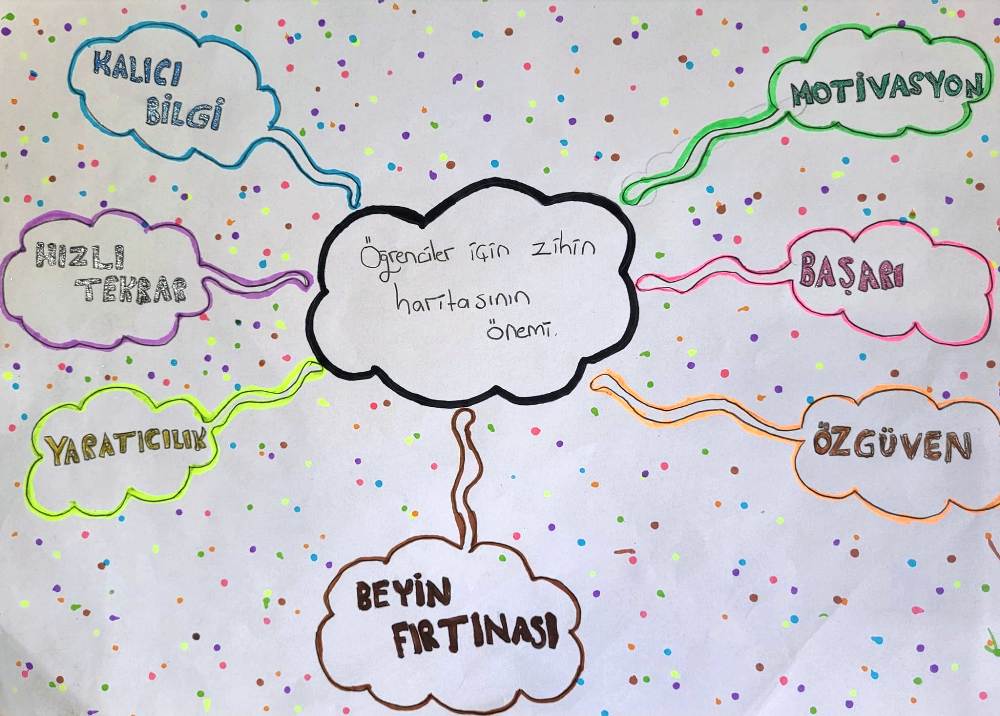 KALICI
BİLGİ
MOTİVASYON
HIZLI
TEKRAR
Öğrenciler için zihin
haritasının
önemi.
BAŞARI
YARATICILIK
ÖZGÜVEN
BEYİN
FIRTINASI